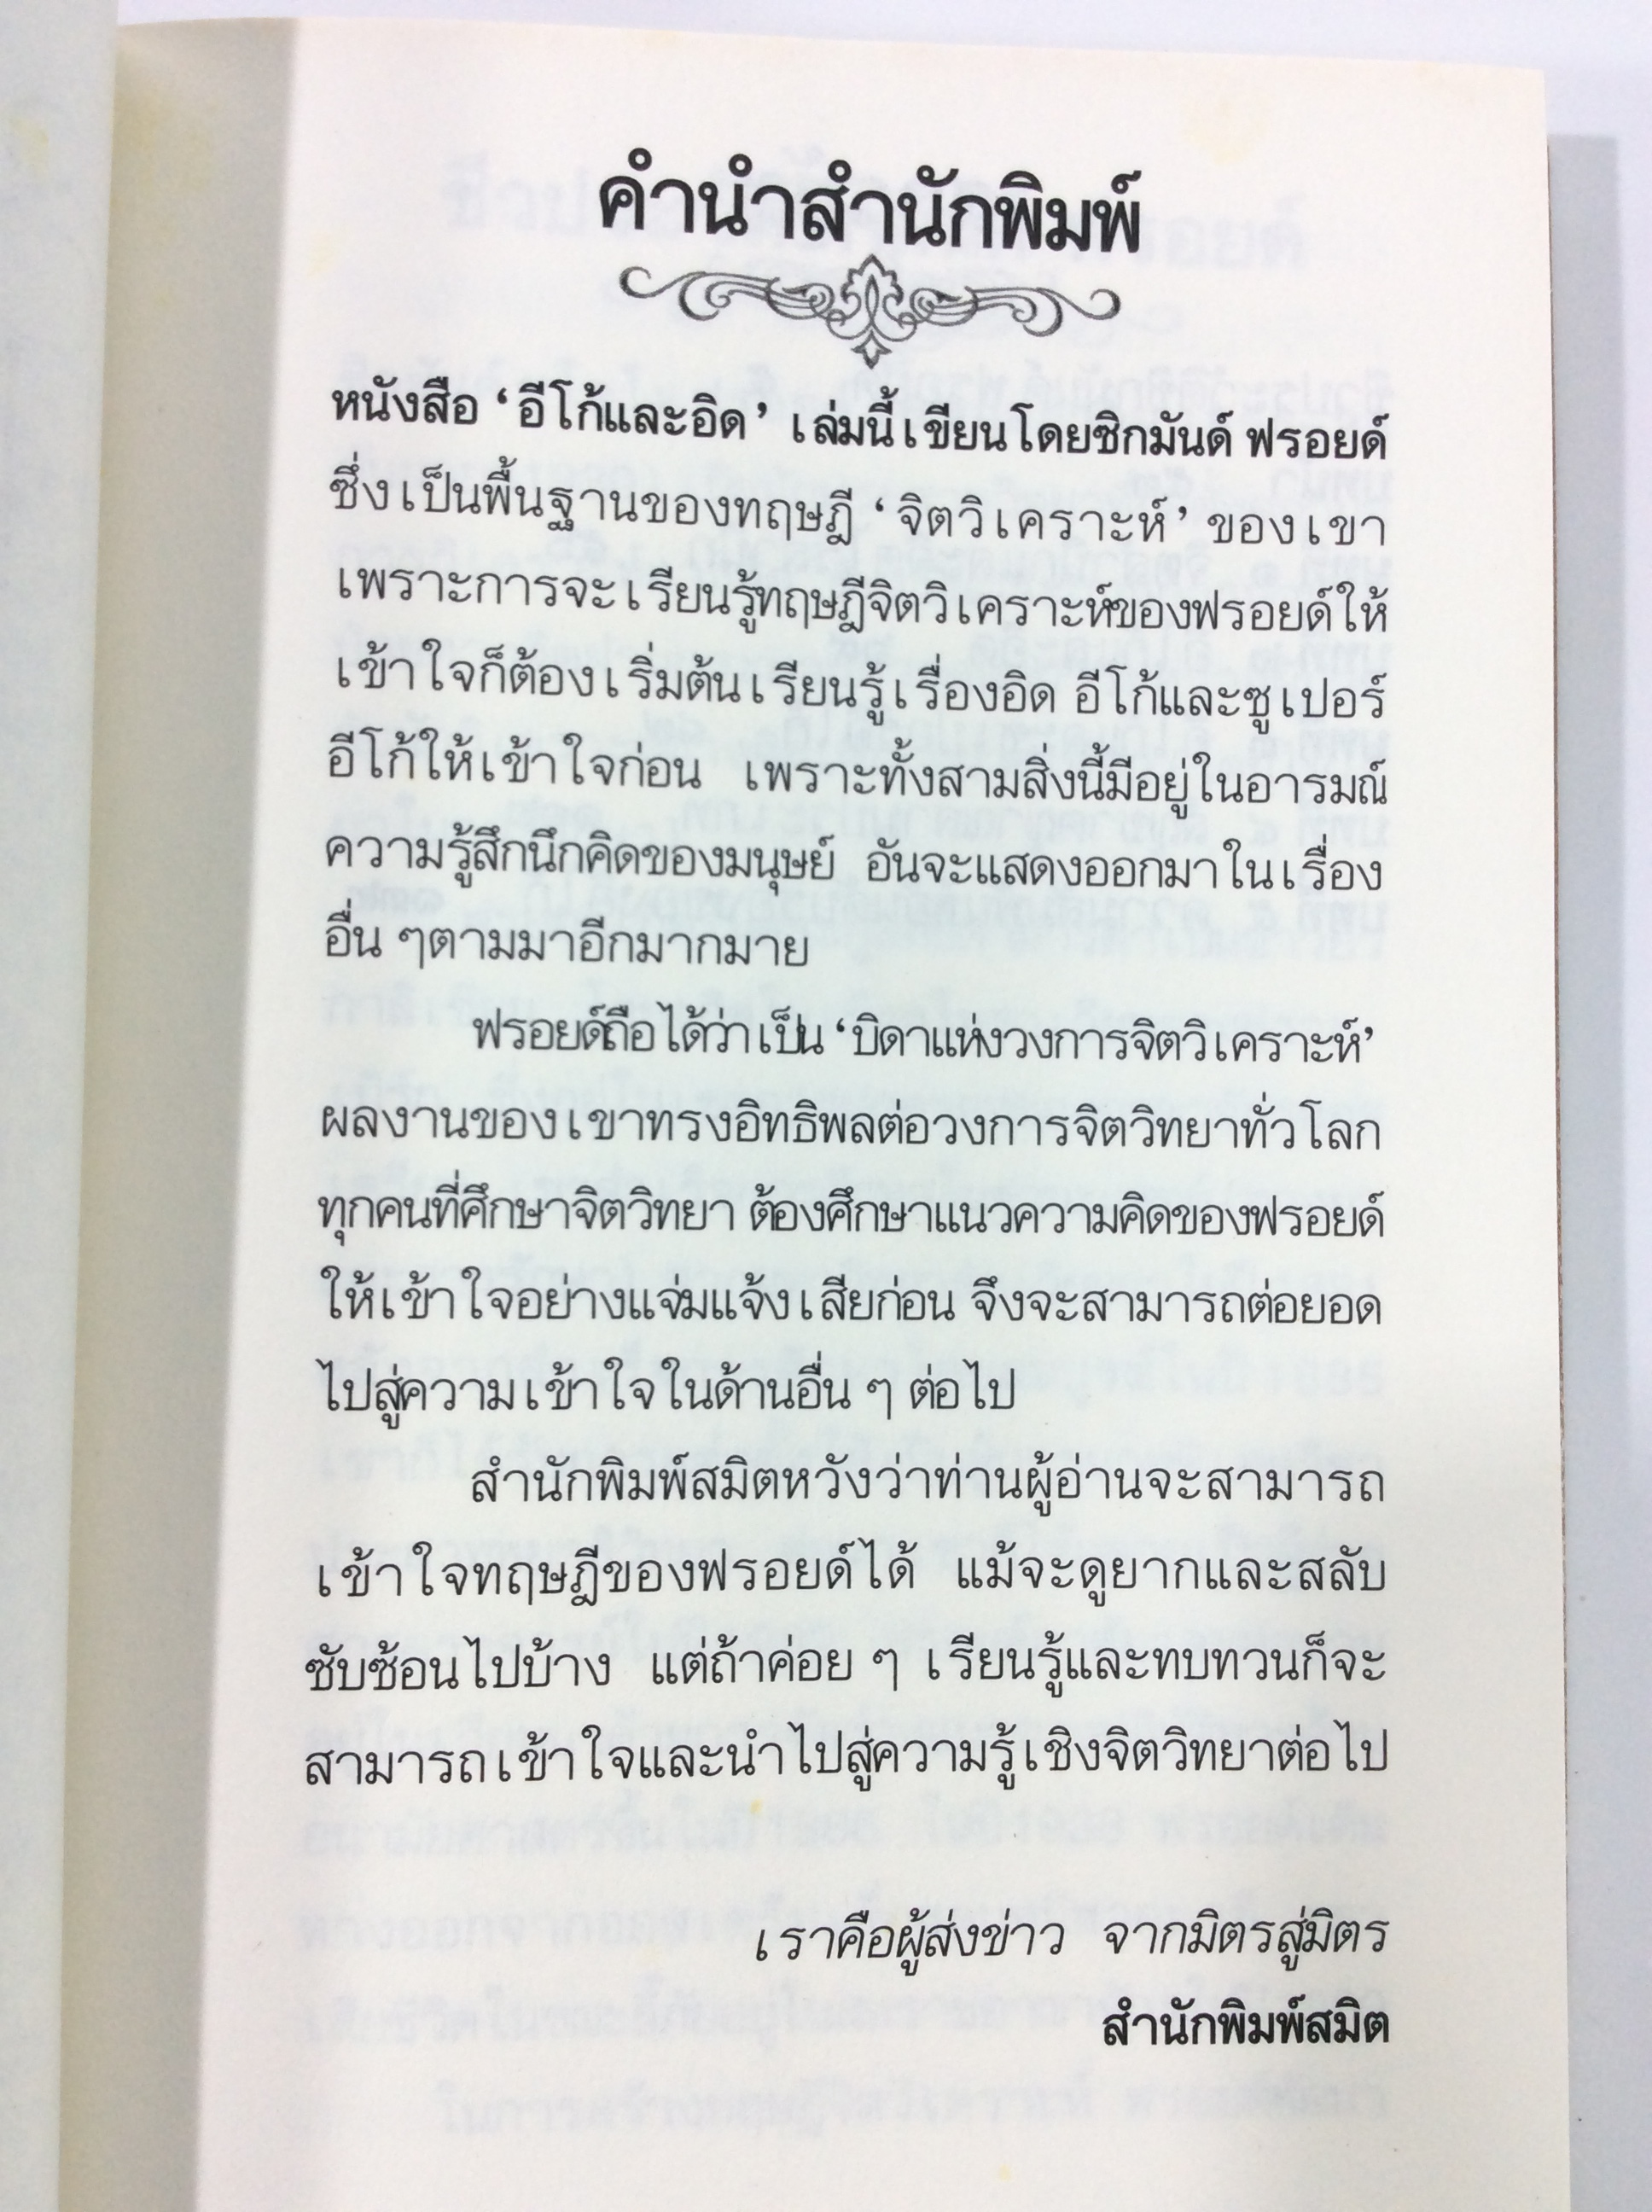 คำนำสำนักพิมพ์
หนังสือ ‘อีโก้และอิด’ เล่มนี้เขียนโดยซิกมันด์ ฟรอยด์
ซึ่งเป็นพื้นฐานของทฤษฎี ‘จิตวิเคราะห์’ ของเขา
เพราะการจะเรียนรู้ทฤษฎีจิตวิเคราะห์ของฟรอยด์ให้
เข้าใจก็ต้องเริ่มต้นเรียนรู้เรื่องอิด อีโก้และซูเปอร์
อีโก้ให้เข้าใจก่อน เพราะทั้งสามสิ่งนี้มีอยู่ในอารมณ์
ความรู้สึกนึกคิดของมนุษย์ อันจะแสดงออกมาในเรื่อง
อื่น ๆตามมาอีกมากมาย
ฟรอยด์ถือได้ว่าเป็น ‘บิดาแห่งวงการจิตวิเคราะห์’
ผลงานของเขาทรงอิทธิพลต่อวงการจิตวิทยาทั่วโลก
ทุกคนที่ศึกษาจิตวิทยา ต้องศึกษาแนวความคิดของฟรอยด์
ให้เข้าใจอย่างแจ่มแจ้งเสียก่อน จึงจะสามารถต่อยอด
ไปสู่ความเข้าใจในด้านอื่น ๆ ต่อไป
สำนักพิมพ์สมิตหวังว่าท่านผู้อ่านจะสามารถ
เข้าใจทฤษฎีของฟรอยด์ได้ แม้จะดูยากและสลับ
ซับซ้อนไปบ้าง แต่ถ้าค่อย ๆ เรียนรู้และทบทวนก็จะ
สามารถเข้าใจและนำไปสู่ความรู้เชิงจิตวิทยาต่อไป
เราคือผู้ส่งข่าว จากมิตรสู่มิตร
สำนักพิมพ์สมิต